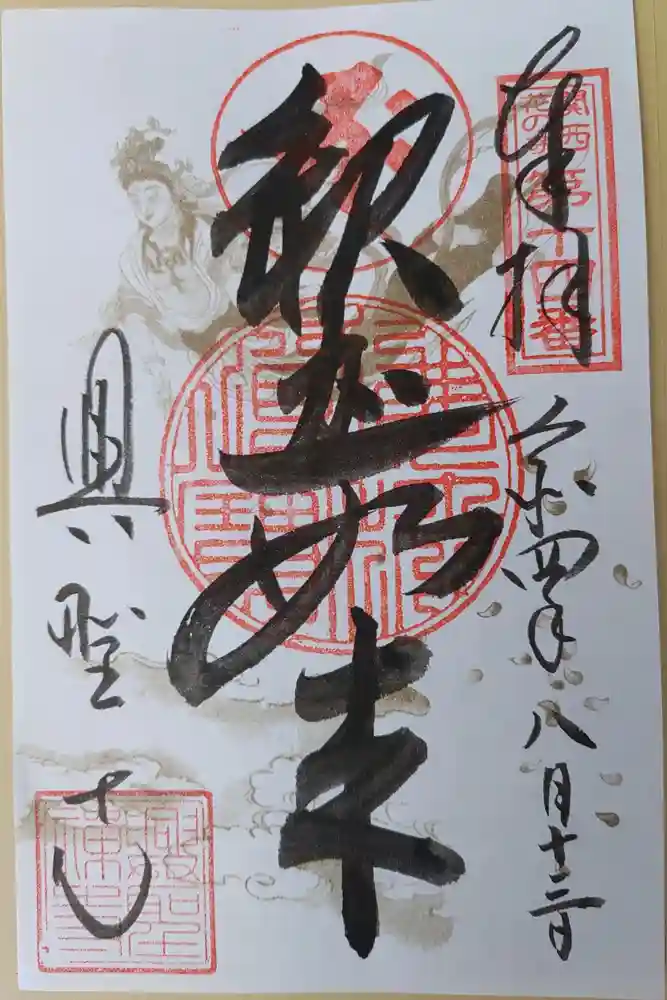 奉拝
関西
花の寺
第十四番
令和四年八月十二日
釈迦如来
興聖寺